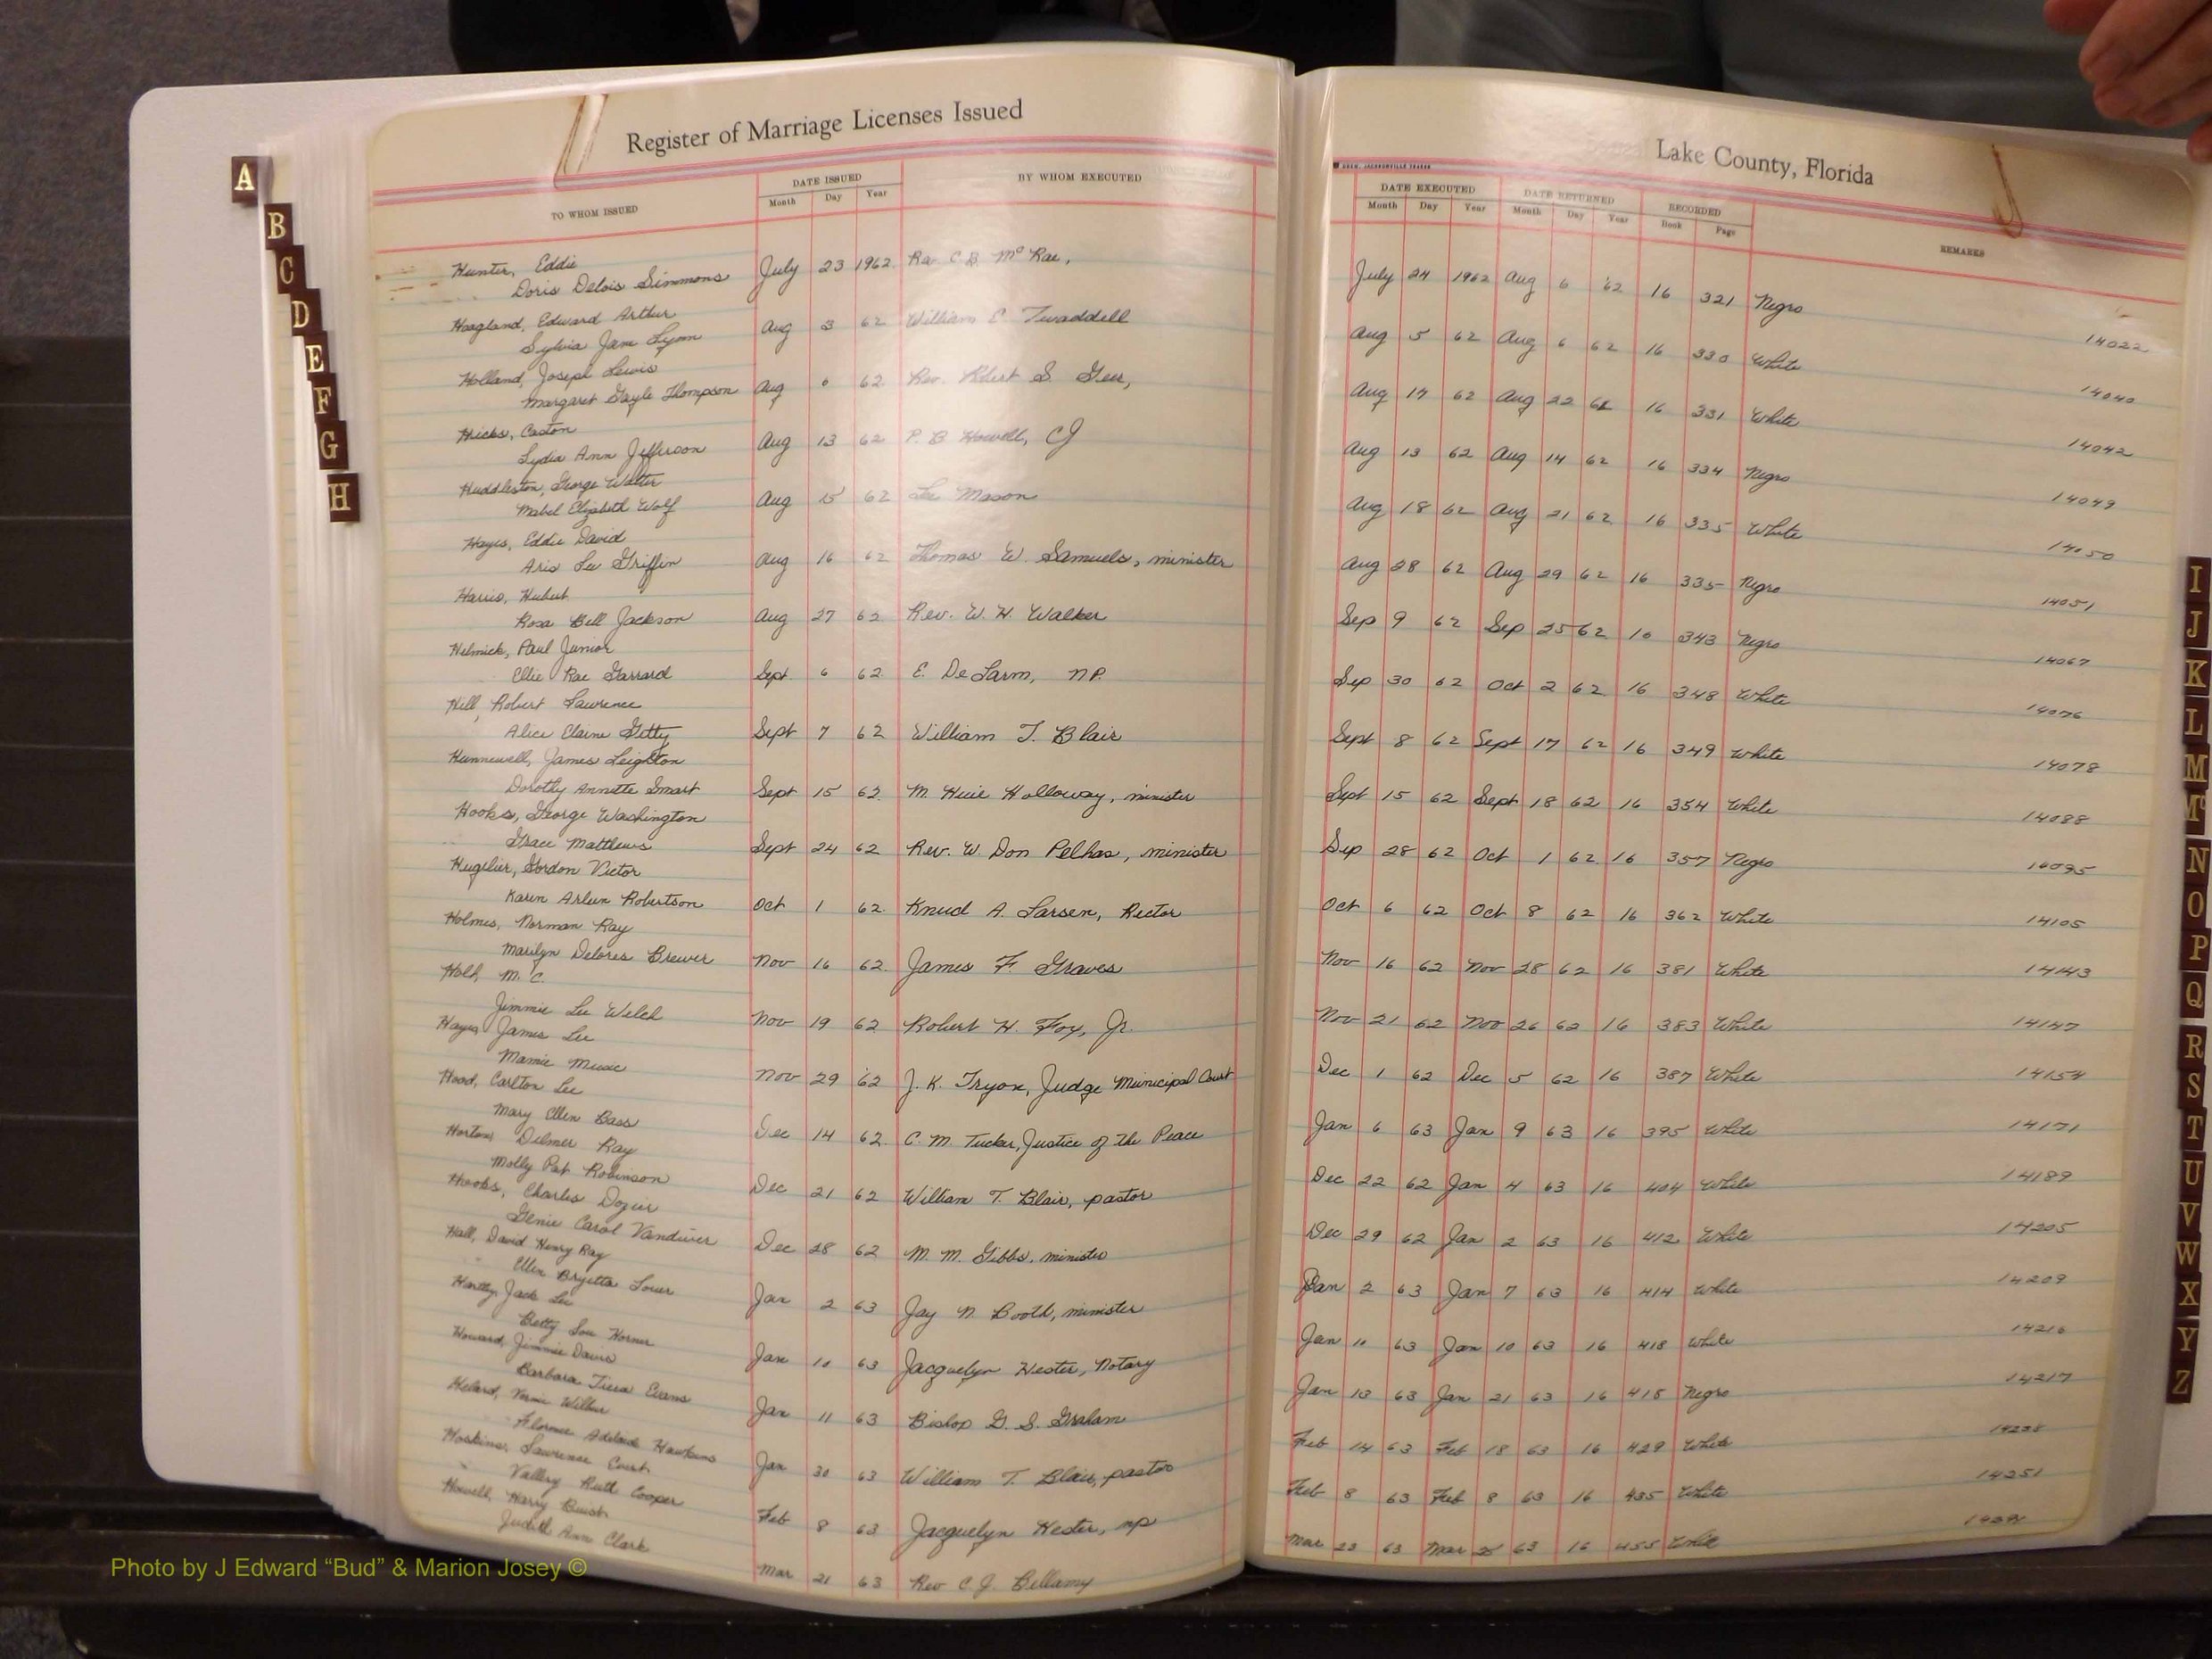 Register of Marriage Licenses Issued
TO WHOM ISSUED
DATE ISSUED
Month Day Year
BY WHOM EXECUTED
Hunter, Eddie
Doris Delois Simmons July 23 1962 Rev. C B. McRae,
Hoagland, Edward Arthur
Sylvia Jane Lyon Aug 3 62 William E. Twaddell
Holland, Joseph Lewis
Margaret Gayle Thompson Aug 6 62 Rev. Robert S. Geer,
Hicks, Caston
Lydia Ann Jefferson Aug 13 62 P. B. Howell, CJ
Huddleston, George Walter
Mabel Elizabeth Wolf Aug 15 62 Lee Mason
Hayes, Eddie David
Aris Lee Griffin Aug 16 62 Thomas W. Samuels, minister
Harris, Hubert
Rosa Bell Jackson Aug 27 62 Rev. W. H. Walker
Helmick, Paul Junior
Ellie Rae Garrard Sept 6 62 E. DeLarm, N.P.
Hill, Robert Lawrence
Alice Elaine Getty Sept 7 62 William T. Blair
Hunnewell, James Leighton
Dorothy Annette Smart Sept 15 62 M. Huie Holloway, minister
Hooks, George Washington
Grace Matthews Sept 24 62 Rev. W. Don Pelhas, minister
Hugelier, Gordon Victor
Karen Arleen Robertson Oct 1 62 Knud A. Larsen, Rector
Holmes, Norman Ray
Marilyn Delores Brewer Nov 16 62 James F. Graves
Holt, M. C.
Jimmie Lee Welch Nov 19 62 Robert H. Foy, Jr.
Hayes, James Lee
Mamie Music Nov 29 '62 J. K. Tryon, Judge Municipal Court
Hood, Carlton Lee
Mary Ellen Bass Dec 14 62 C. M. Tucker, Justice of the Peace
Horton, Delmer Ray
Molly Pat Robinson Dec 21 62 William T. Blair, pastor
Hooks, Charles Dozier
Genie Carol Vandiver Dec 28 62 M. M. Gibbs, minister
Hall, David Henry Ray
Ellen Brjetta Jan 2 63 Jay N Booth, minister
Hartley, Jack Lee
Betty Lou Horner Jan 10 63 Jacquelyn Hester, Notary
Howard, Jimmie Davis
Barbara Evans Jan 11 63 Bishop G. S. Graham
Vernie Wilbur
Florence Adelaide Hawkins Jan 30 63 William T. Blair, pastor
Hoskins, Lawrence Court
Vallery Ruth Cooper Feb 8 63 Jacquelyn Hester, np
Howell, Harry
Judith Ann Clark Mar 21 63 Rev C J. Bellamy
Lake County, Florida
DATE EXECUTED DATE RETURNED RECORDED
Month Day Year Month Day Year Book Page REMARKS
July 24 1962 Aug 6 '62 16 321 Negro 14022
Aug 5 62 Aug 6 62 16 330 White 14040
Aug 17 62 Aug 22 62 16 331 White 14042
Aug 13 62 Aug 14 62 16 334 Negro 14049
Aug 18 62 Aug 21 62 16 335 White 14050
Aug 28 62 Aug 29 62 16 335 Negro 14051
Sep 9 62 Sep 25 62 16 343 Negro 14067
Sep 30 62 Oct 2 62 16 348 White 14076
Sept 8 62 Sept 17 62 16 349 White 14078
Sept 15 62 Sept 18 62 16 354 White 14088
Sep 28 62 Oct 1 62 16 357 Negro 14095
Oct 6 62 Oct 8 62 16 362 White 14105
Nov 16 62 Nov 28 62 16 381 White 14143
Nov 21 62 Nov 26 62 16 383 White 14147
Dec 1 62 Dec 5 62 16 387 White 14154
Jan 6 63 Jan 9 63 16 395 White 14171
Dec 22 62 Jan 4 63 16 404 White 14189
Dec 29 62 Jan 2 63 16 412 White 14205
Jan 2 63 Jan 7 63 16 414 White 14209
Jan 11 63 Jan 10 63 16 418 White 14216
Jan 13 63 Jan 21 63 16 418 Negro 14217
Feb 14 63 Feb 18 63 16 429 White
Feb 8 63 Feb 8 63 16 435 White 14251
Mar 23 63 Mar 63 16 455 White
A
B
C
D
E
F
G
H
I
J
K
L
M
Mc
N
O
P
Q
R
S
T
U
V
W
X
Y
Z
Photo by J Edward “Bud” & Marion Josey ©